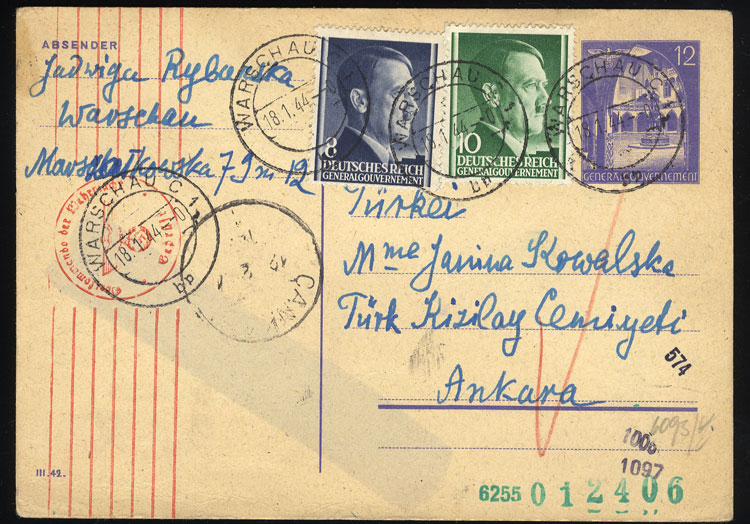 ABSENDER
Jadwiga Rybarska
Warschau
Marszałkowska 79 m 12
WARSCHAU C 1
18.1.44
bp
8
DEUTSCHES REICH
GENERALGOUVERNEMENT
WARSCHAU C 1
18.1.44
bp
10
DEUTSCHES REICH
GENERALGOUVERNEMENT
WARSCHAU C 1
18.1.44
12
GENERALGOUVERNEMENT
WARSCHAU C 1
18.1.44
bp
Oberkommando der Wehrmacht
Türkei
Mme Janina Kowalska
Türk Kizilay Cemiyeti
Ankara
574
1097
6255 012406
III.42.